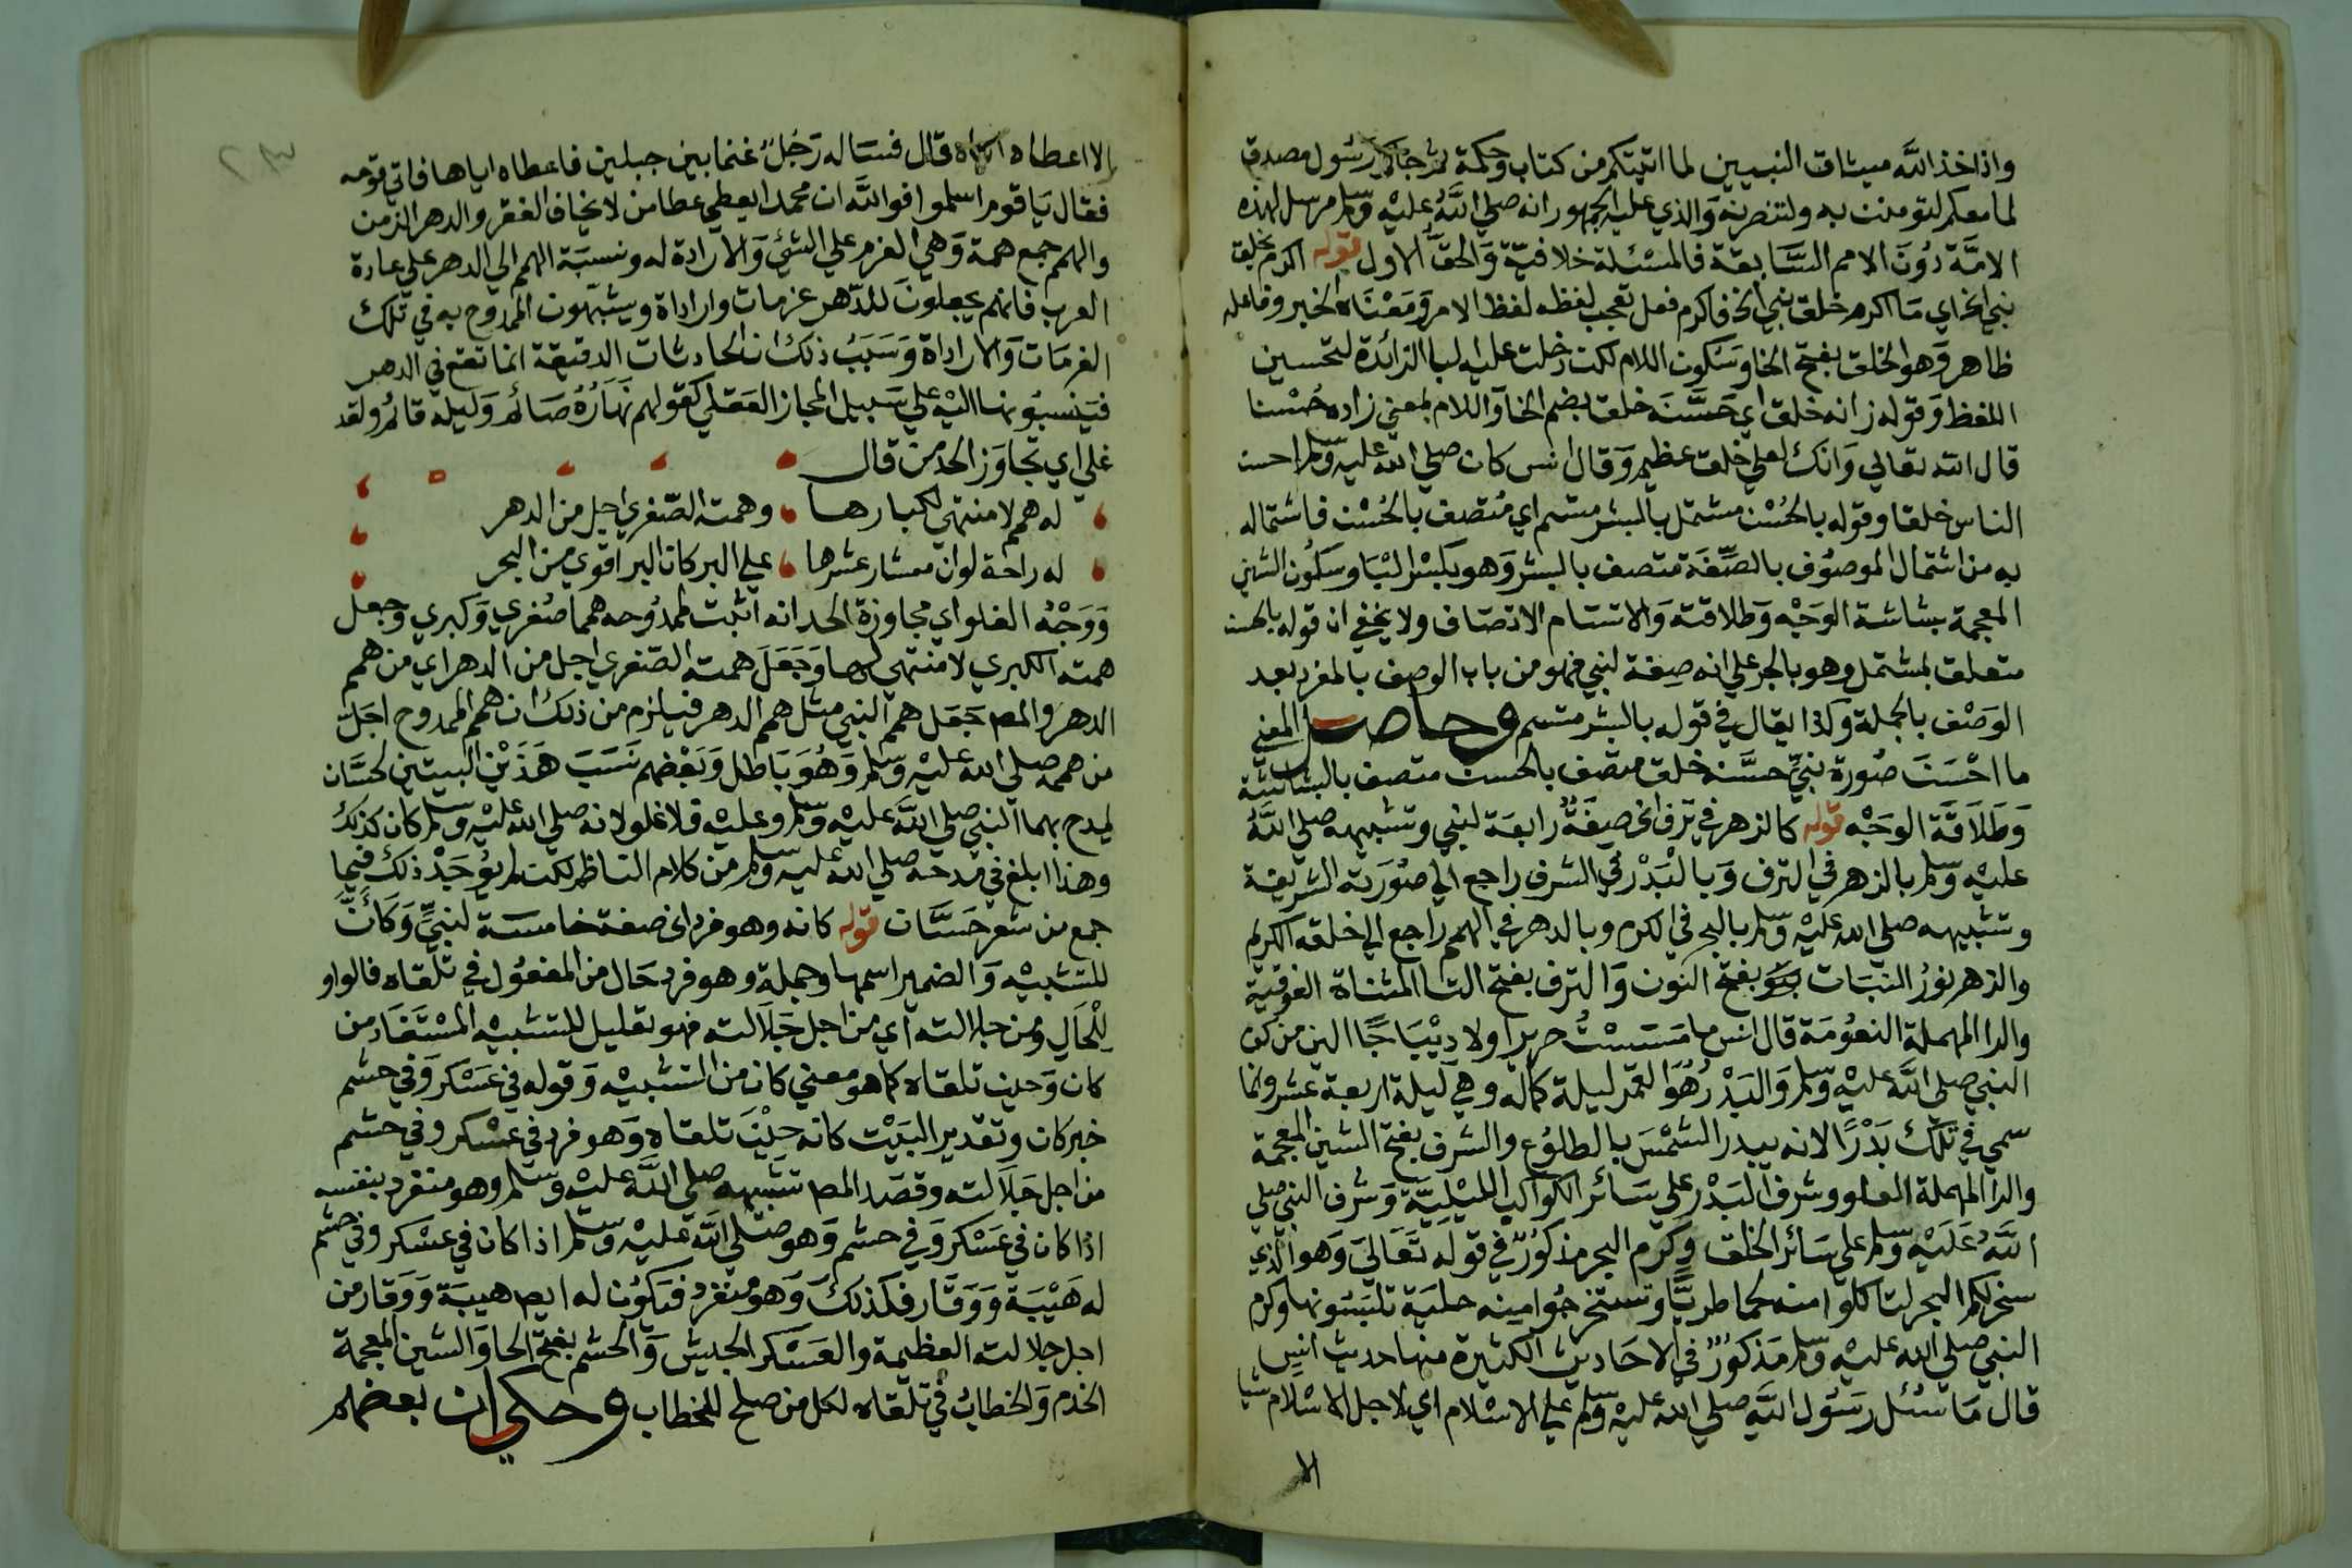 واذ اخذ الله ميثاق النبيين لما اتيتكم من كتاب وحكمة ثم جاكم رسول مصدق
لما معكم لتومنن به ولتنصرنه والذي عليه الجمهور انه صلي الله عليه وسلم مرسل لهذه
الامة دون الامم السابقة فالمسئلة خلافية والحق الاول قوله اكرم بخلق
نبي الخ اي ما اكرم خلق نبي الخ فاكرم فعل تعجب لفظه لفظ الامر ومعناه الخبر وفاعله
ظاهر وهو الخلق بفتح الخا وسكون اللام لكن دخلت عليه لبا الزائدة لتحسين
اللفظ وقوله زانه خلق اي حسنه خلق بضم الخا واللام بمعني زاده حسنا
قال الله تعالي وانك لعلي خلق عظيم وقال انس كان صلي الله عليه وسلم احسن
الناس خلقا وقوله بالحسن مشتمل بالبشر متسم اي متصف بالحسن فاشتماله
به من اشتمال الموصوف بالصفة متصف بالبشر وهو بكسر البا وسكون الشين
المعجمة بشاشة الوجه وطلاقته والاتسام الاتصاف ولا يخفي ان قوله بالحسن
متعلق بمشتمل وهو بالجر علي انه صفة لنبي فهو من باب الوصف بالمفرد بعد
الوصف بالجملة وكذا يقال في قوله بالبشر متسم وحاصل المعني
ما احسن صورة نبي حسنه خلق متصف بالحسن متصف بالبشاشة
وطلاقة الوجه قوله كالزهر في ترف الخ صفة رابعة لنبي وتشبيهه صلي الله
عليه وسلم بالزهر في الترف وبالبدر في الشرف راجع الي صورته الشريفة
وتشبيهه صلي الله عليه وسلم بالبحر في الكرم وبالدهر في الهمم راجع الي خلقه الكريم
والزهر نور النبات بفتح النون والترف بفتح التا المثناة الفوقية
والرا المهملة النعومة قال انس ما مسست حريرا ولا ديباجا الين من كف
النبي صلي الله عليه وسلم والبدر هو القمر ليلة كماله وهي ليلة اربعة عشر وانما
سمي في تلك بدرا لانه يبدر الشمس بالطلوع والشرف بفتح الشين المعجمة
والرا المهملة العلو وشرف البدر علي سائر الكواكب الليلية وشرف النبي صلي
الله عليه وسلم علي سائر الخلق وكرم البحر مذكور في قوله تعالي وهو الذي
سخر لكم البحر لتاكلوا منه لحما طريا وتستخرجوا منه حلية تلبسونها وكرم
النبي صلي الله عليه وسلم مذكور في الاحاديث الكثيرة منها حديث انس
قال ما سئل رسول الله صلي الله عليه وسلم علي الاسلام اي لاجل الاسلام شيا
الا
الا اعطاه اياه قال فساله رجل غنما بين جبلين فاعطاه اياها فاتي قومه
فقال يا قوم اسلموا فوالله ان محمدا يعطي عطا من لا يخاف الفقر والدهر الزمن
والهمم جمع همة وهي العزم علي الشئ والارادة له ونسبة الهمم الي الدهر علي عادة
العرب فانهم يجعلون للدهر عزمات وارادات ويشبهون الممدوح به في تلك
العزمات والارادات وسبب ذلك ان الحادثات الدقيقة انما تقع في الدهر
فينسبونها اليه علي سبيل المجاز العقلي كقولهم نهاره صائم وليله قائم ولقد
غلي اي تجاوز الحد من قال
له همم لا منتهي لكبارها وهمته الصغري اجل من الدهر
له راحة لو ان معشار عشرها علي البر كان البر اقوي من البحر
ووجه الغلو اي مجاوزة الحد انه اثبت لممدوحه همما صغري وكبري وجعل
همته الكبري لا منتهي لها وجعل همته الصغري اجل من الدهر اي من همم
الدهر والمص جعل همم النبي مثل همم الدهر فيلزم من ذلك ان همم الممدوح اجل
من هممه صلي الله عليه وسلم وهو باطل وبعضهم نسب هذين البيتين لحسان
يمدح بهما النبي صلي الله عليه وسلم وعليه فلا غلو لانه صلي الله عليه وسلم كان كذلك
وهذا ابلغ في مدحه صلي الله عليه وسلم من كلام الناظم لكن لم يوجد ذلك فيما
جمع من شعر حسان قوله كانه وهو فرد الخ صفة خامسة لنبي وكان
للتشبيه والضمير اسمها وجملة وهو فرد حال من المفعول في تلقاه فالواو
للحال ومن جلالته اي من اجل جلالته فهو تعليل للتشبيه المستفاد من
كان وحين تلقاه كما هو معني كان من التشبيه وقوله في عسكر وفي حشم
خبر كان وتقدير البيت كانه حين تلقاه وهو فرد في عسكر وفي حشم
من اجل جلالته وقصد المص تشبيهه صلي الله عليه وسلم وهو منفرد بنفسه
اذا كان في عسكر وفي حشم وهو صلي الله عليه وسلم اذا كان في عسكر وفي حشم
له هيبة ووقار فكذلك وهو منفرد فتكون له ايض هيبة ووقار من
اجل جلالته العظيمة والعسكر الجيش والحشم بفتح الحا والشين المعجمة
الخدم والخطاب في تلقاه لكل من صلح للخطاب وحكي ان بعضهم